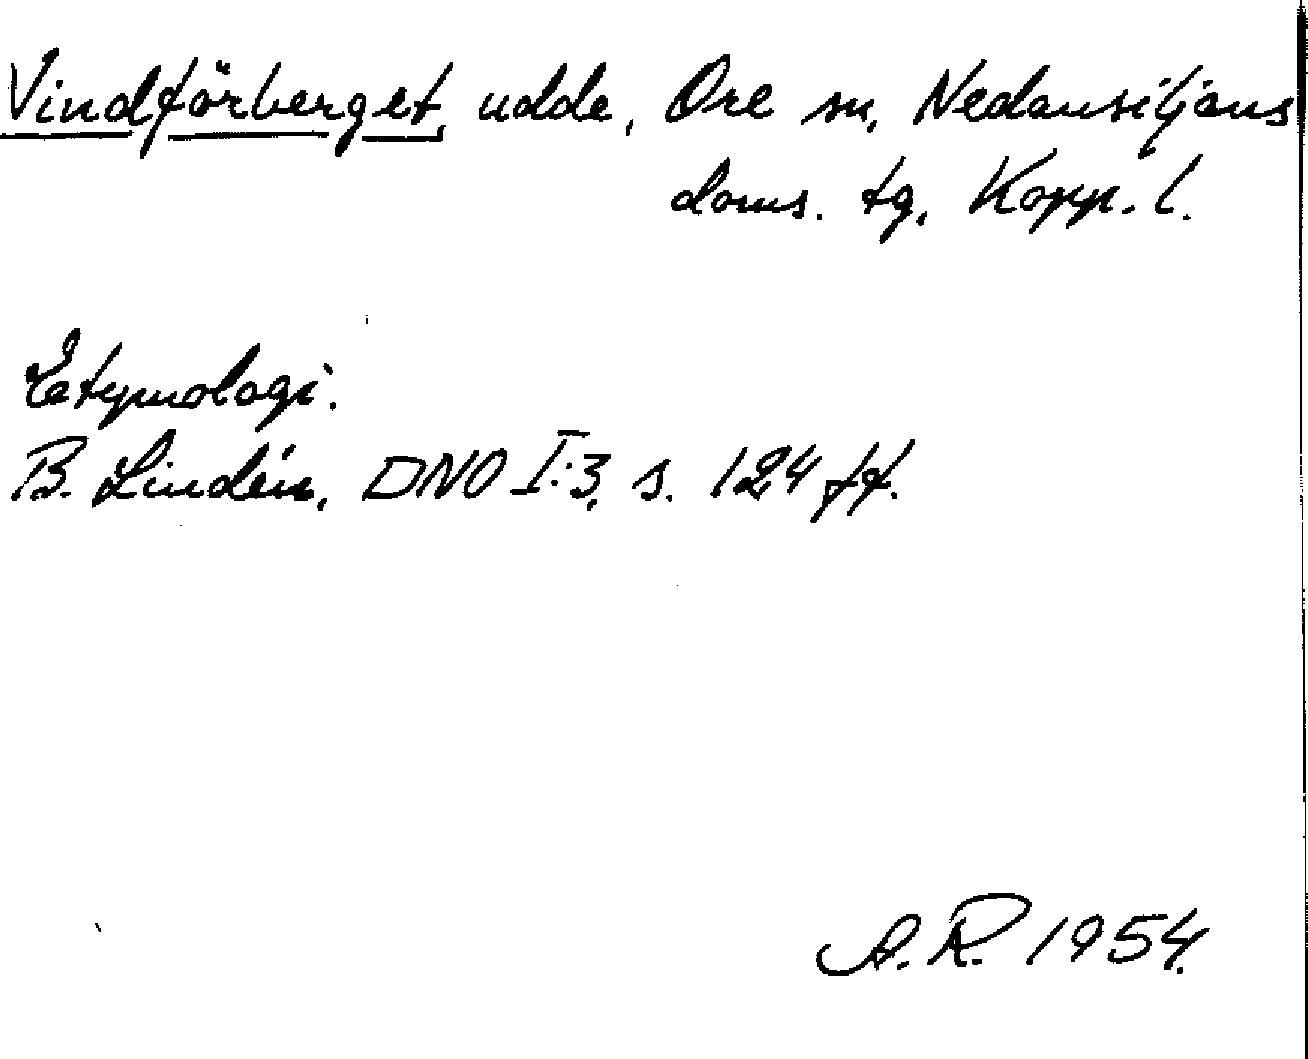 Vindförberget, udde, Ore sn, Nedansiljans
doms. tg, Kopp. l.
Etymologi.
B. Lindén, DNO I:3, s. 124 ff.
A.R. 1954.